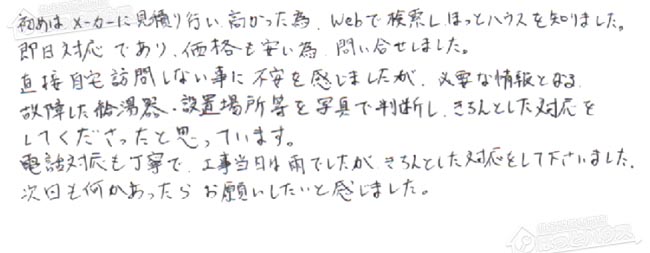 初めはメーカーに見積り行い高かった為、Webで検索しほっとハウスを知りました。
即日対応であり、価格も安い為、問い合せしました。
直接自宅訪問しない事に不安を感じましたが、必要な情報となる
故障した給湯器・設置場所等を写真で判断し、きちんとした対応を
してくださったと思っています。
電話対応も丁寧で、工事当日は雨でしたが、きちんとした対応をして下さいました。
次回も何かあったらお願いしたいと感じました。
ほっとハウス